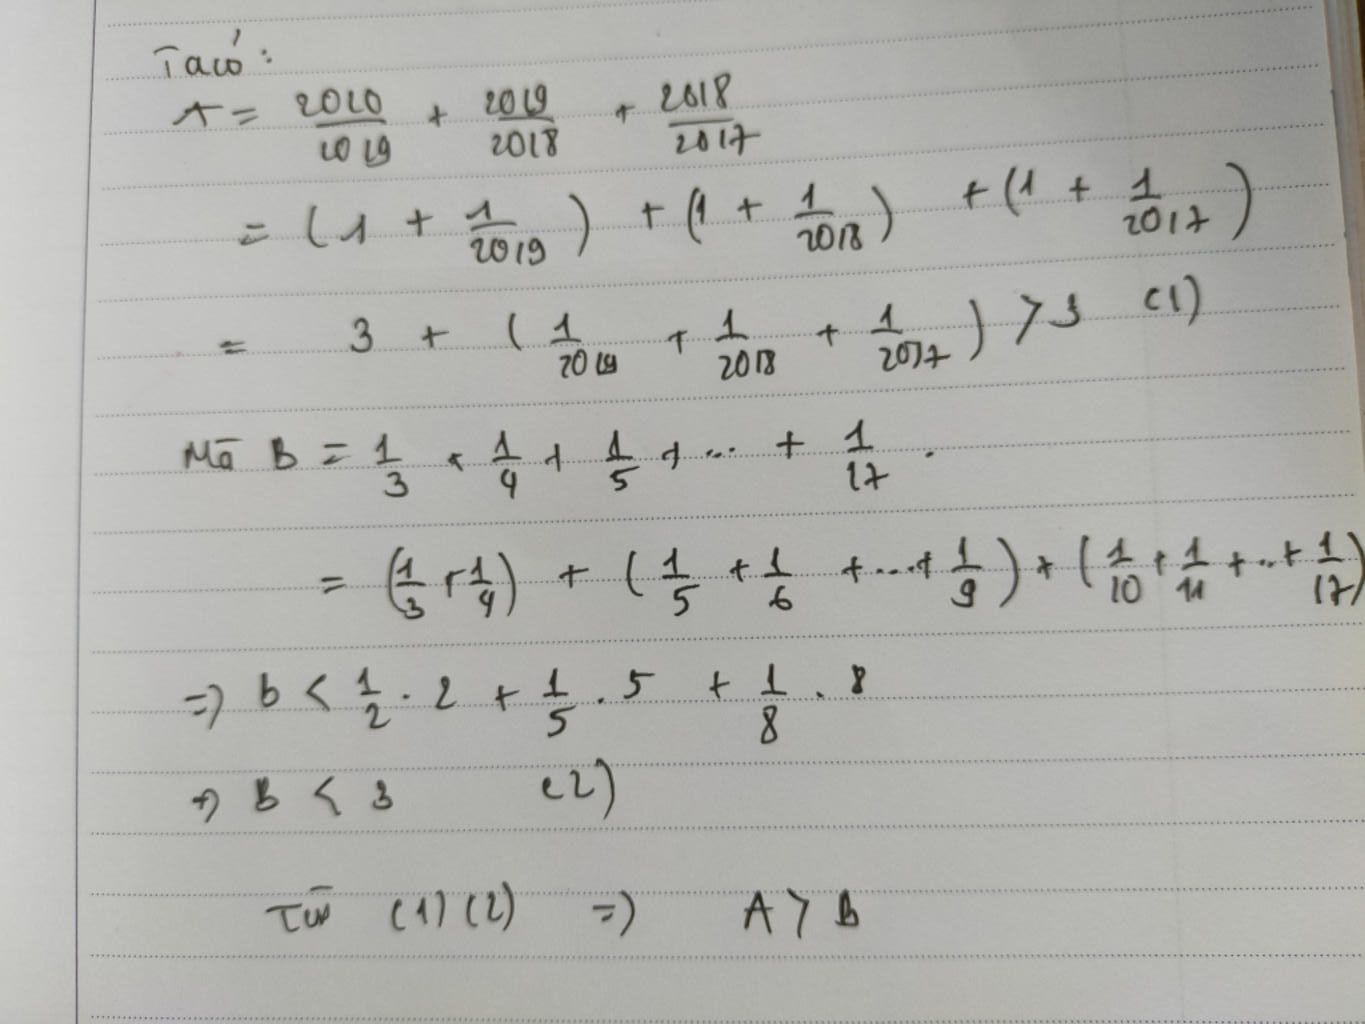 Ta có:
A = 2020/2019 + 2019/2018 + 2018/2017
= (1 + 1/2019) + (1 + 1/2018) + (1 + 1/2017)
= 3 + (1/2019 + 1/2018 + 1/2017) > 3 (1)
Mà B = 1/3 + 1/4 + 1/5 + ... + 1/17.
= (1/3 + 1/4) + (1/5 + 1/6 + ... + 1/9) + (1/10 + 1/11 + .. + 1/17)
=> B < 1/2 . 2 + 1/5 . 5 + 1/8 . 8
=> B < 3 (2)
Từ (1) (2) => A > B